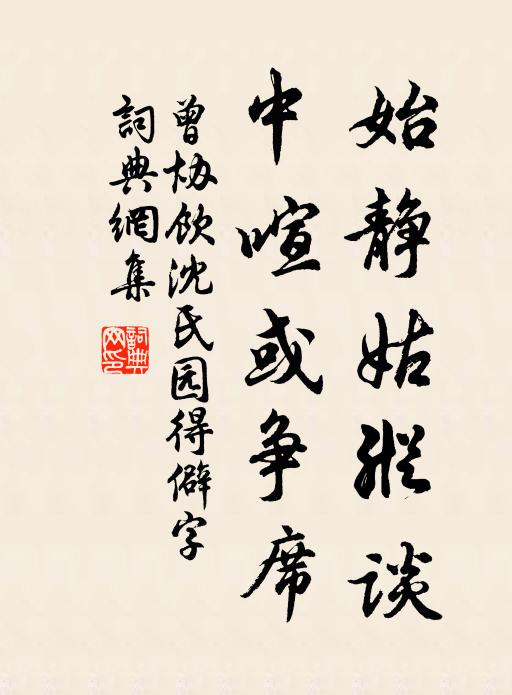 始静姑纵谈
中喧或争席
曾协饮沈民园得僻字
詞典網集
詞典网印